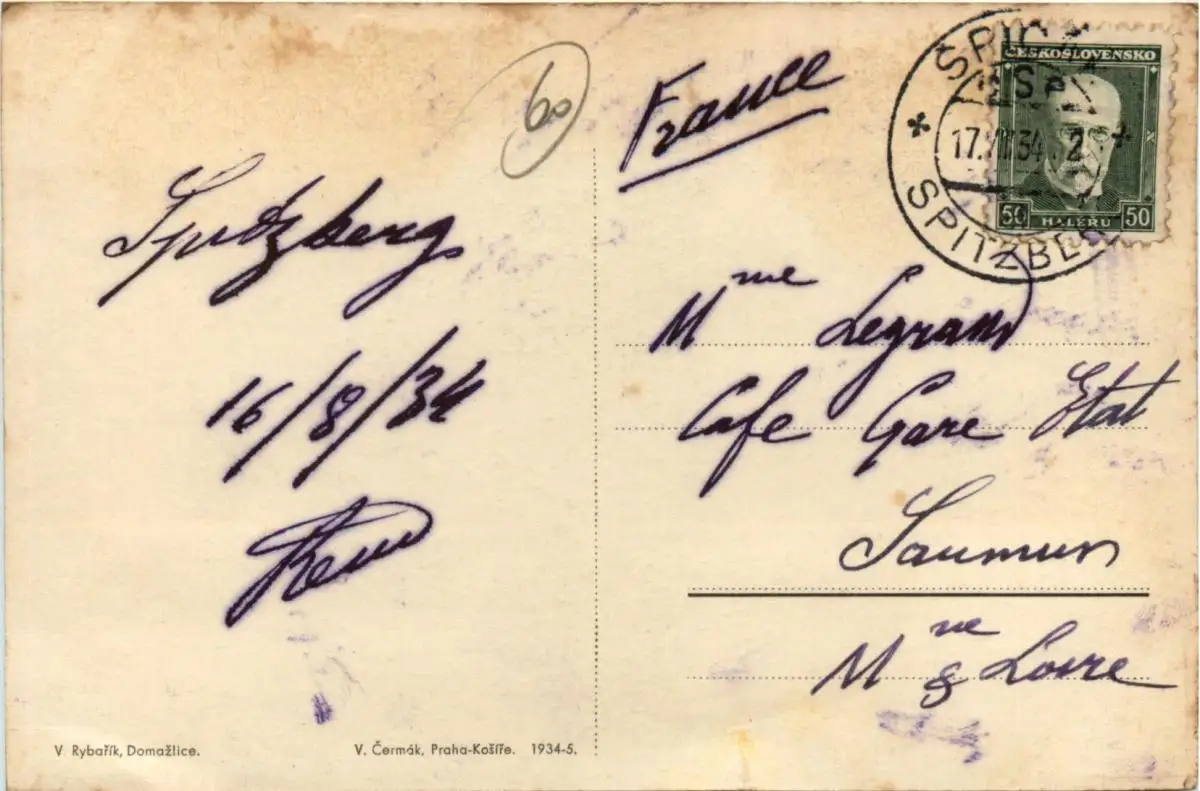 60
France
ČESKOSLOVENSKO
17.VIII.34.
50 HALÉŘŮ 50
SPITZBE
Spitzberg
16/8/34
Mme Legrand
Cafe Gare Etat
Saumur
Mne & Loire
V. Rybařík, Domažlice.
V. Čermák, Praha-Košíře. 1934-5.